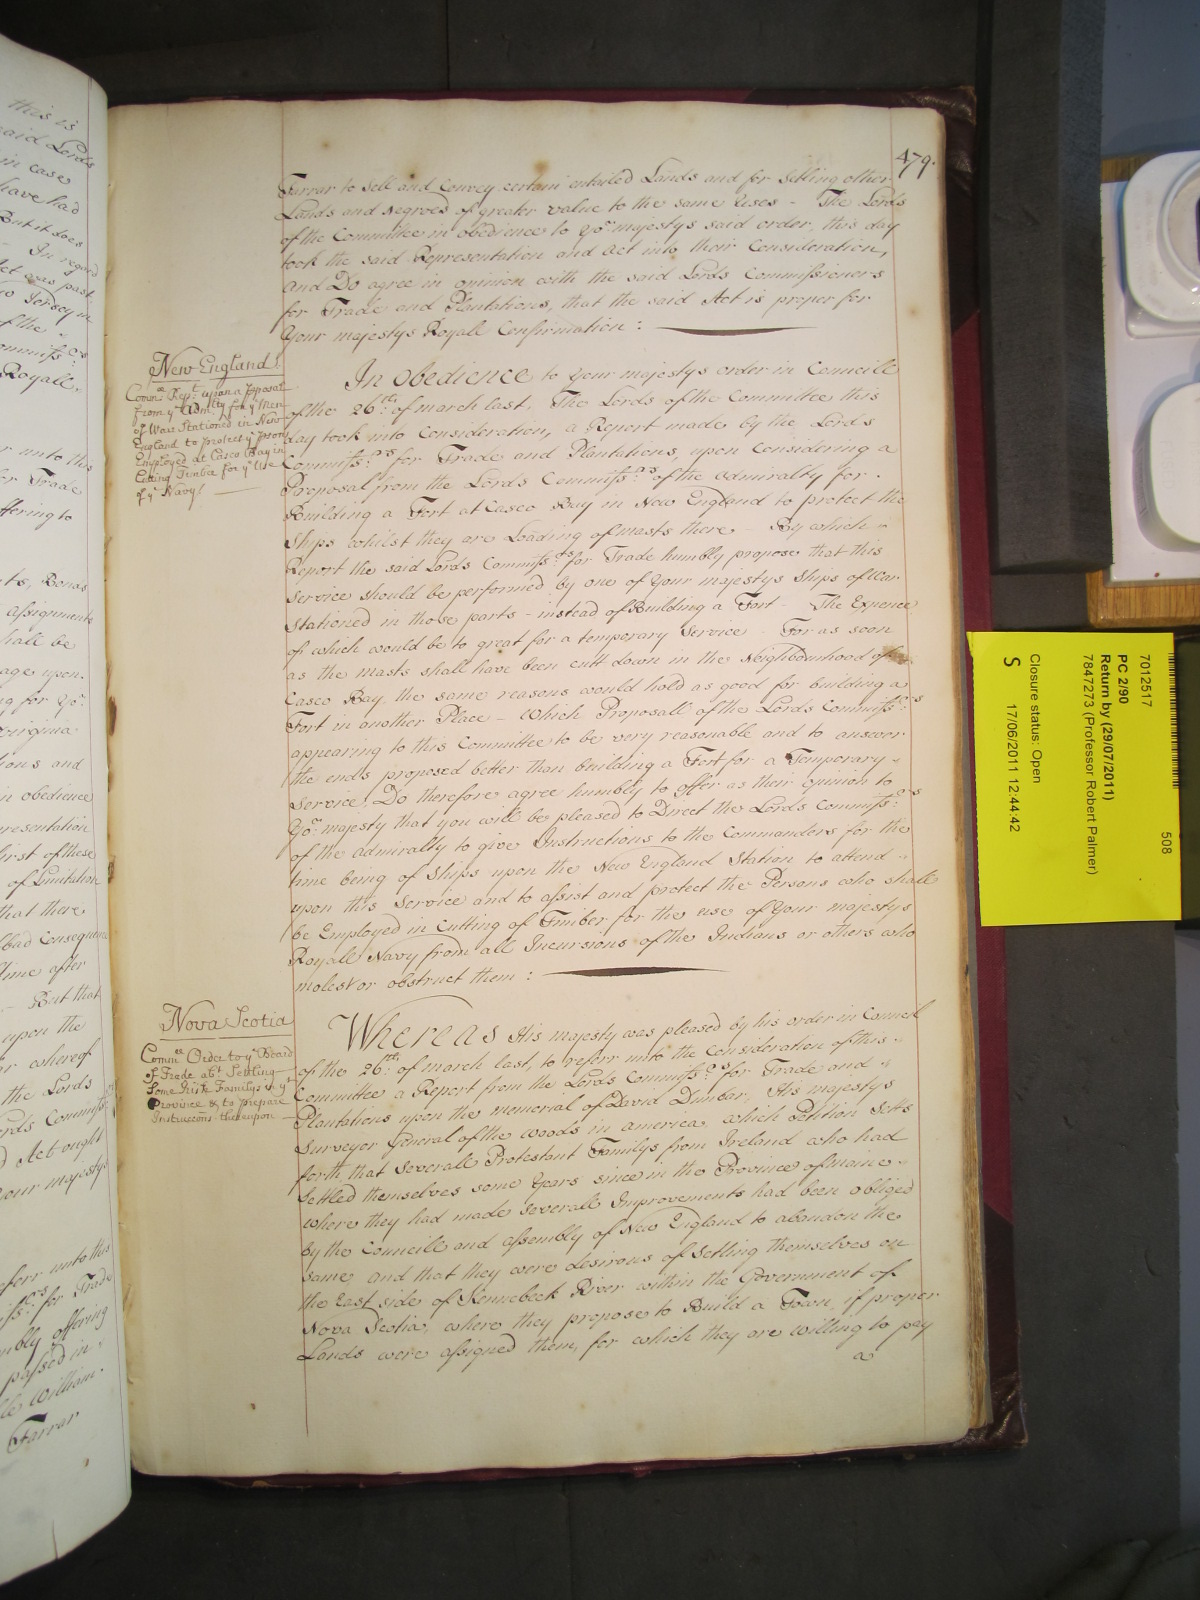 479.
Farrar to Sell and Convey certain entailed Lands and for Setling other
Lands and Negroes of greater value to the same Uses - The Lords
of the Committee in obedience to yor. majestys said order, this day
took the said Representation and Act into their Consideration,
and Do agree in opinion with the said Lords Commissioners
for Trade and Plantations, that the said Act is proper for
Your majestys Royall Confirmation :
New England
Commee. Rept. upon a Proposal
from ye Admlty for ye Men
of War Stationed in New
England to protect ye persons
Employed at Casco Bay in
Cutting Timber for ye Use
of ye Navy
In Obedience to Your majestys order in Councill
of the 26th: of march last, The Lords of the Committee this
day took into Consideration, a Report made by the Lords
Commissrs. for Trade and Plantations, upon Considering a
Proposal from the Lords Commissrs. of the Admiralty for
Building a Fort at Casco Bay in New England to protect the
Ships whilst they are Loading of masts there - By which
Report the said Lords Commissrs. for Trade humbly propose that this
Service should be performed by one of Your majestys Ships of War
Stationed in those parts - instead of Building a Fort - The Expence
of which would be to great for a temporary Service For as soon
as the masts shall have been cutt down in the Neighbourhood of
Casco Bay the same reasons would hold as good for building a
Fort in another Place - Which Proposall of the Lords Commissrs.
appearing to this Committee to be very reasonable and to answer
the ends proposed better than building a Fort for a Temporary
Service, Do therefore agree humbly to offer as their opinion to
Yor. majesty that you will be pleased to Direct the Lords Commissrs.
of the Admiralty to give Instructions to the Commanders for the
time being of Ships upon the New England Station to attend
upon this Service and to assist and protect the Persons who shall
be Employed in Cutting of Timber for the use of Your majestys
Royall Navy from all Incursions of the Indians or others who
molest or obstruct them :
Nova Scotia
Commee. Order to ye Board
of Trade abt. Settling
Some Irish Familys in yt
Province & to prepare
Instruccons thereupon
Whereas His majesty was pleased by his order in Councill
of the 26th: of march last, to referr unto the Consideration of this
Committee a Report from the Lords Commissrs. for Trade and
Plantations upon the memorial of David Dunbar, His majestys
Surveyor General of the woods in america which Petition Setts
forth that Severall Protestant Familys from Ireland who had
Settled themselves some Years since in the Province of maine
where they had made Severall Improvements had been obliged
by the Councill and assembly of New England to abandon the
same and that they were desirous of Setling themselves on
the East side of Kennebeck River within the Government of
Nova Scotia, where they propose to Build a Town, if proper
Lands were assigned them, for which they are willing to pay
a
7012517 508
PC 2/90
Return by (29/07/2011)
7847273 (Professor Robert Palmer)
Closure status: Open
S 17/06/2011 12:44:42